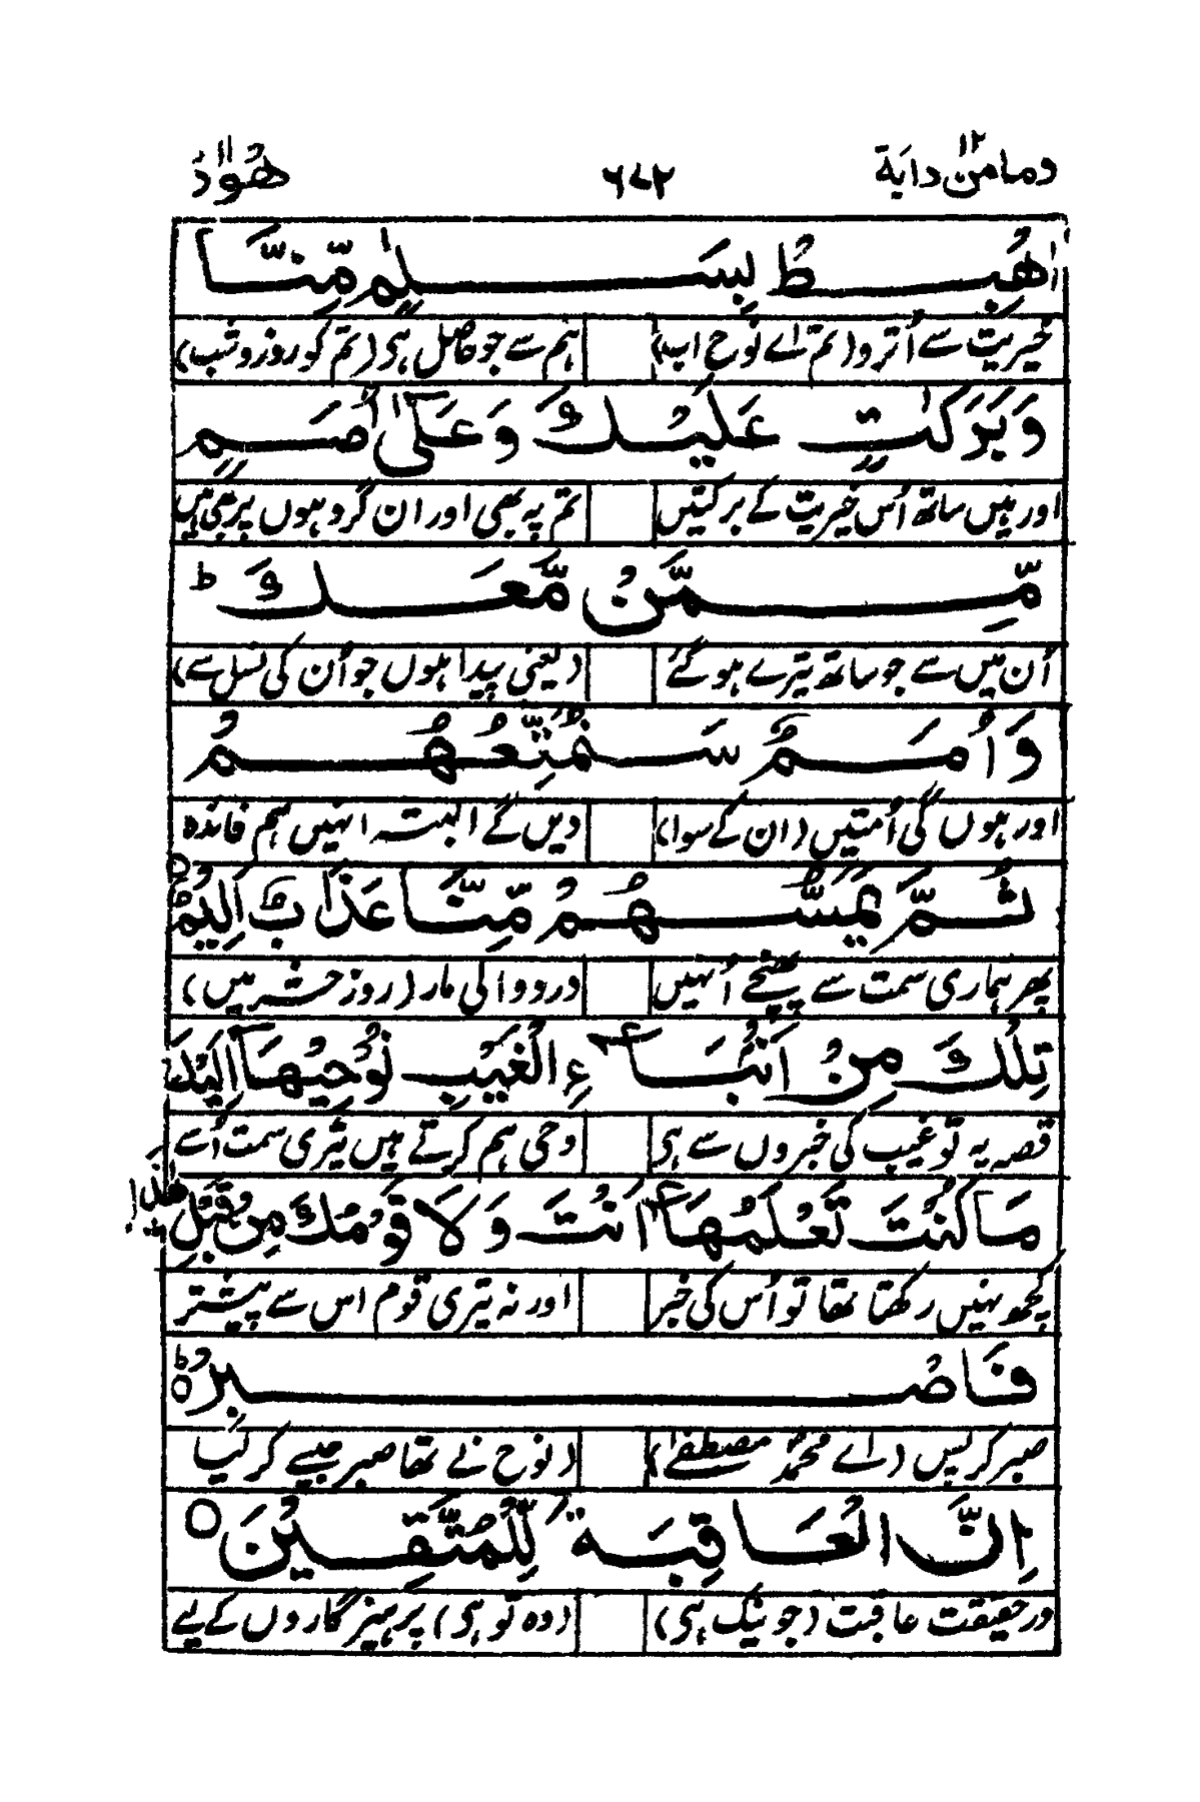 وما من دابة ١٢ ٦٧٢ هود ١١
اهْبِطْ بِسَلٰمٍ مِّنَّا
خیریت سے اُترو (تم اے نوح اب) ہم سے جو حاصل ہی (تم کو روز و شب)
وَبَرَكٰتٍ عَلَيْكَ وَعَلٰٓى اُمَمٍ
اور ہیں ساتھ اُس خیریت کے برکتیں تم پہ بھی اور ان گروہوں پر بھی ہیں
مِّمَّنْ مَّعَكَ ؕ
اُن میں سے جو ساتھ تیرے ہو گئے (یعنی پیدا ہوں جو اُن کی نسل سے)
وَاُمَمٌ سَنُمَتِّعُهُمْ
اور ہوں گی اُمتیں (ان کے سوا) دیں گے البتہ انہیں ہم فائدہ
ثُمَّ يَمَسُّهُمْ مِّنَّا عَذَابٌ اَلِيْمٌ ○
پھر ہماری سمت سے پہنچے اُنہیں درد والی مار (روزِ حشر میں)
تِلْكَ مِنْ اَنْۢبَآءِ الْغَيْبِ نُوْحِيْهَآ اِلَيْكَ
قصہ یہ تو غیب کی خبروں سے ہی وحی ہم کرتے ہیں تیری سمت اُسے
مَا كُنْتَ تَعْلَمُهَآ اَنْتَ وَلَا قَوْمُكَ مِنْ قَبْلِ هٰذَا ۛ
کچھ نہیں رکھتا تھا تو اُس کی خبر اور نہ تیری قوم اس سے پیشتر
فَاصْبِرْ ۛؕ
صبر کر لیں (اے محمدؐ مصطفےٰ) (نوح نے تھا صبر جیسے کر لیا
اِنَّ الْعَاقِبَةَ لِلْمُتَّقِيْنَ ○
در حقیقت عاقبت (جو نیک ہی) (وہ تو ہی) پرہیز گاروں کے لیے